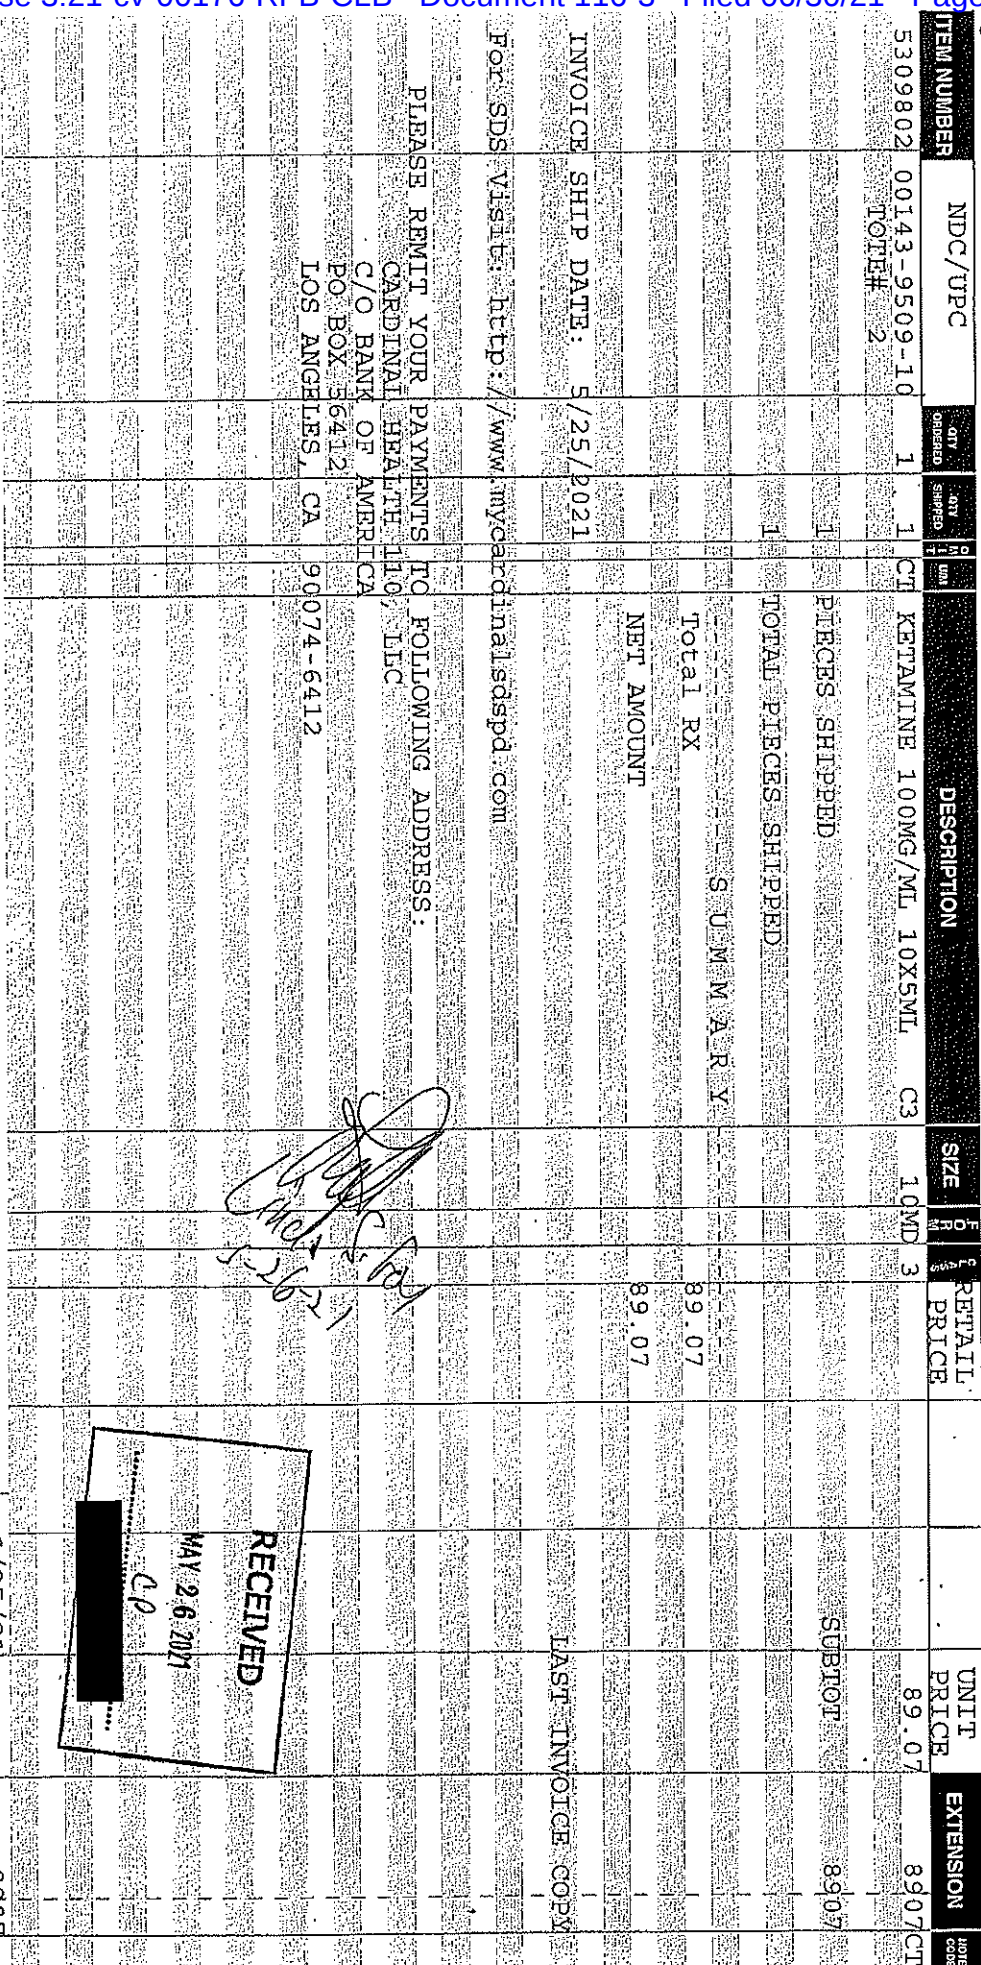 se 3:21-cv-00176-RFB-CLB Document 116-3 Filed 06/30/21 Page
ITEM NUMBER NDC/UPC QTY ORDERED QTY SHIPPED OMIT U/M DESCRIPTION SIZE FORM CLASS RETAIL PRICE UNIT PRICE EXTENSION NOTE CODE
5309802 00143-9509-10 1 1 CT KETAMINE 100MG/ML 10X5ML C3 10MD 3 89.07 8907CT
TOTE# 2
1 PIECES SHIPPED SUBTOT 8907
1 TOTAL PIECES SHIPPED
S U M M A R Y
Total RX 89.07
NET AMOUNT 89.07
INVOICE SHIP DATE: 5/25/2021 LAST INVOICE COPY
For SDS Visit: http://www.mycardinalsdspd.com
PLEASE REMIT YOUR PAYMENTS TO FOLLOWING ADDRESS:
CARDINAL HEALTH 110, LLC
C/O BANK OF AMERICA
PO BOX 56412
LOS ANGELES, CA 90074-6412
5-26-21
RECEIVED
MAY 26 2021
CP